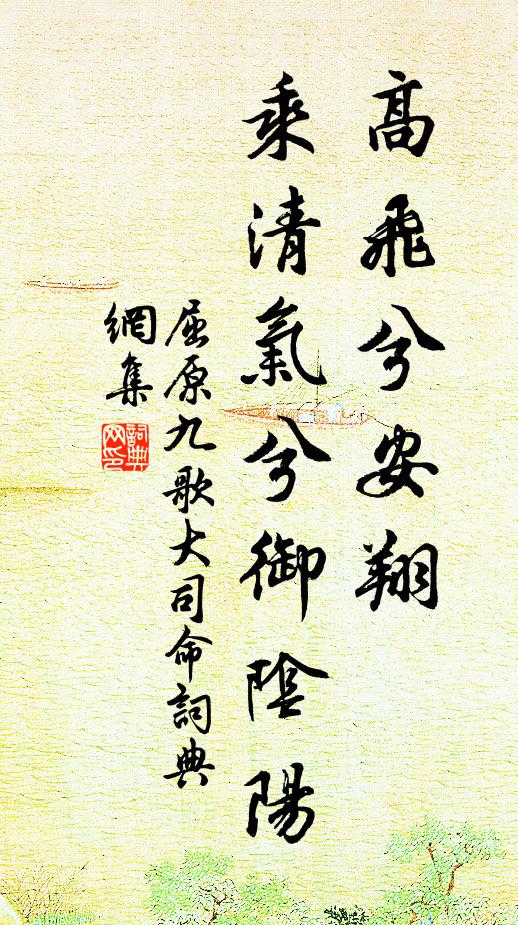 高飛兮安翔
乘清氣兮御陰陽
屈原九歌大司命詞典
網集
詞典
网印